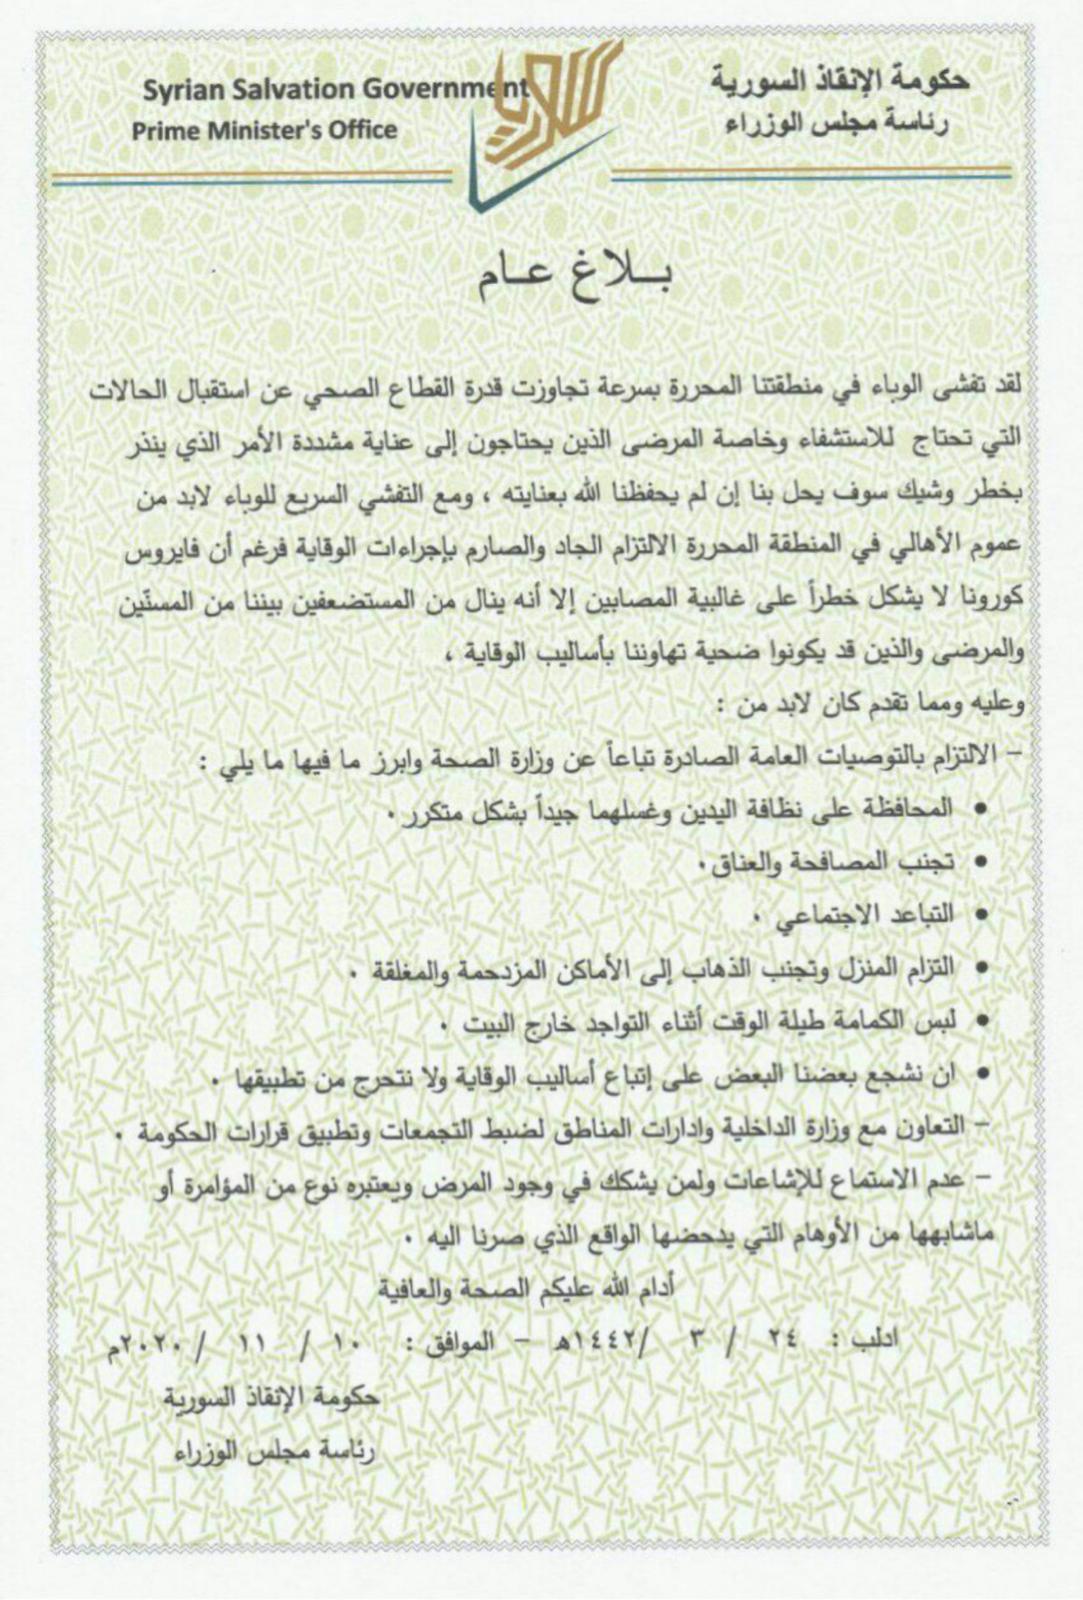 Syrian Salvation Government
Prime Minister's Office
حكومة الإنقاذ السورية
رئاسة مجلس الوزراء
بـلاغ عـام
لقد تفشى الوباء في منطقتنا المحررة بسرعة تجاوزت قدرة القطاع الصحي عن استقبال الحالات
التي تحتاج للاستشفاء وخاصة المرضى الذين يحتاجون إلى عناية مشددة الأمر الذي ينذر
بخطر وشيك سوف يحل بنا إن لم يحفظنا الله بعنايته ، ومع التفشي السريع للوباء لابد من
عموم الأهالي في المنطقة المحررة الالتزام الجاد والصارم بإجراءات الوقاية فرغم أن فايروس
كورونا لا يشكل خطراً على غالبية المصابين إلا أنه ينال من المستضعفين بيننا من المسنّين
والمرضى والذين قد يكونوا ضحية تهاوننا بأساليب الوقاية ،
وعليه ومما تقدم كان لابد من :
– الالتزام بالتوصيات العامة الصادرة تباعاً عن وزارة الصحة وابرز ما فيها ما يلي :
• المحافظة على نظافة اليدين وغسلهما جيداً بشكل متكرر .
• تجنب المصافحة والعناق.
• التباعد الاجتماعي .
• التزام المنزل وتجنب الذهاب إلى الأماكن المزدحمة والمغلقة .
• لبس الكمامة طيلة الوقت أثناء التواجد خارج البيت .
• ان نشجع بعضنا البعض على إتباع أساليب الوقاية ولا نتحرج من تطبيقها .
– التعاون مع وزارة الداخلية وادارات المناطق لضبط التجمعات وتطبيق قرارات الحكومة .
– عدم الاستماع للإشاعات ولمن يشكك في وجود المرض ويعتبره نوع من المؤامرة أو
ماشابهها من الأوهام التي يدحضها الواقع الذي صرنا اليه .
أدام الله عليكم الصحة والعافية
ادلب : ٢٤ / ٣ /١٤٤٢هـ – الموافق : ١٠ / ١١ /٢٠٢٠م
حكومة الإنقاذ السورية
رئاسة مجلس الوزراء